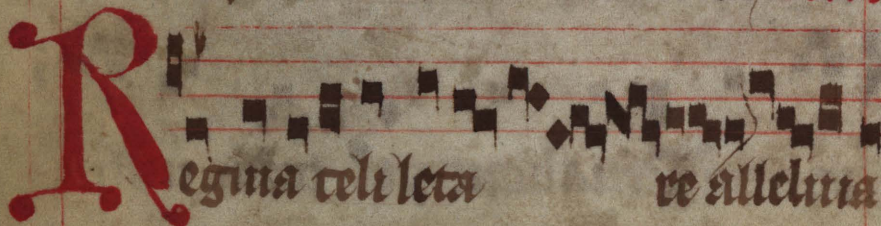 Regina celi leta re alleluia